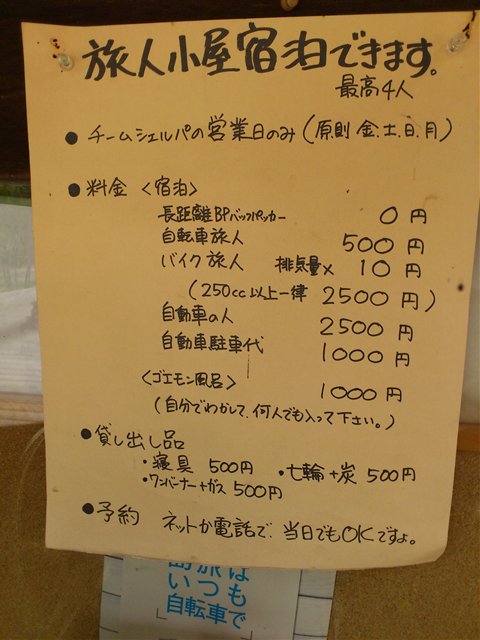 旅人小屋宿泊できます。
最高4人
● チームシェルパの営業日のみ (原則 金.土.日.月)
● 料金 〈宿泊〉
長距離BPバックパッカー 0円
自転車旅人 500円
バイク旅人 排気量× 10円
(250cc以上一律 2500円)
自動車の人 2500円
自動車駐車代 1000円
〈ゴエモン風呂〉 1000円
(自分でわかして、何人でも入って下さい。)
● 貸し出し品
・寝具 500円 ・七輪+炭 500円
・ワンバーナー+ガス 500円
● 予約 ネットか電話で、当日でもOKですよ。
島旅は
いつも
自転車で